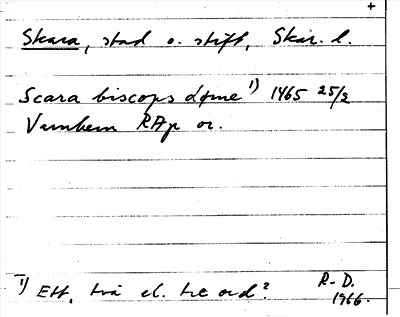 +
Skara, stad o. stift, Skar. l.
Scara biscops døme 1) 1465 25/2
Varnhem RAp or.
1) Ett, två el. tre ord? R-D.
1966.